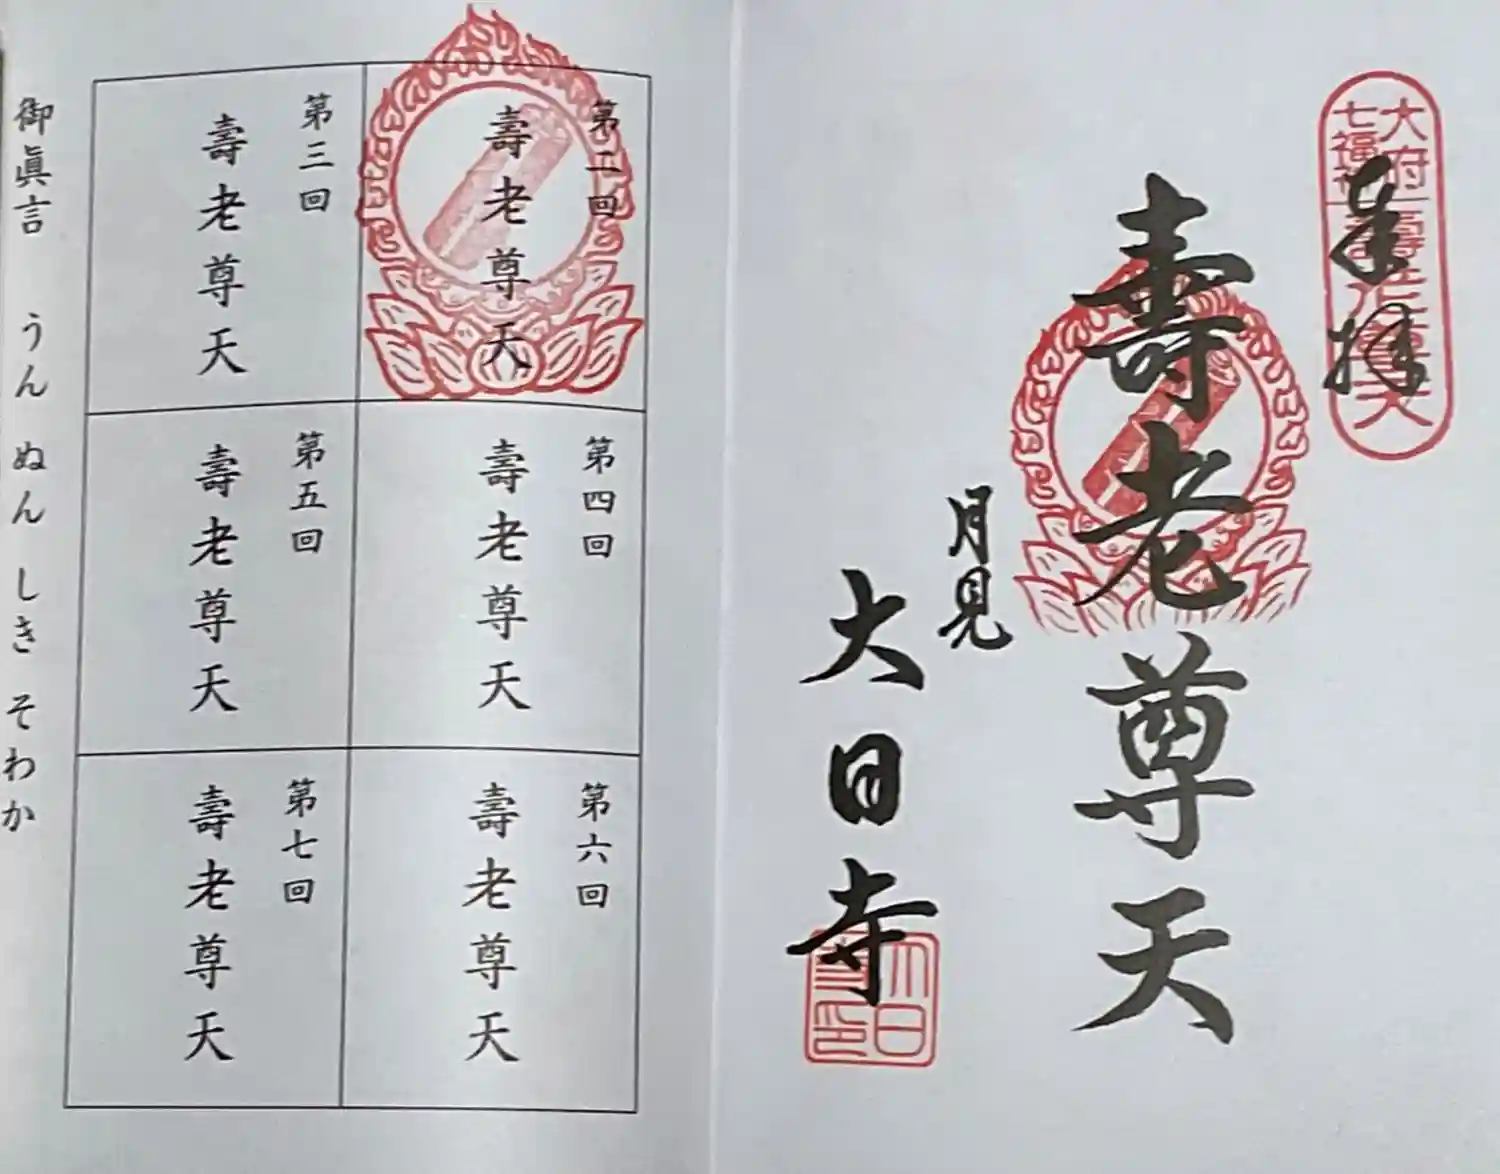 大府
七福神
壽老尊天
奉拝
壽老尊天
月見
大日寺
大日
寺印
第二回
壽老尊天
第三回
壽老尊天
第四回
壽老尊天
第五回
壽老尊天
第六回
壽老尊天
第七回
壽老尊天
御眞言 うん ぬん しき そわか